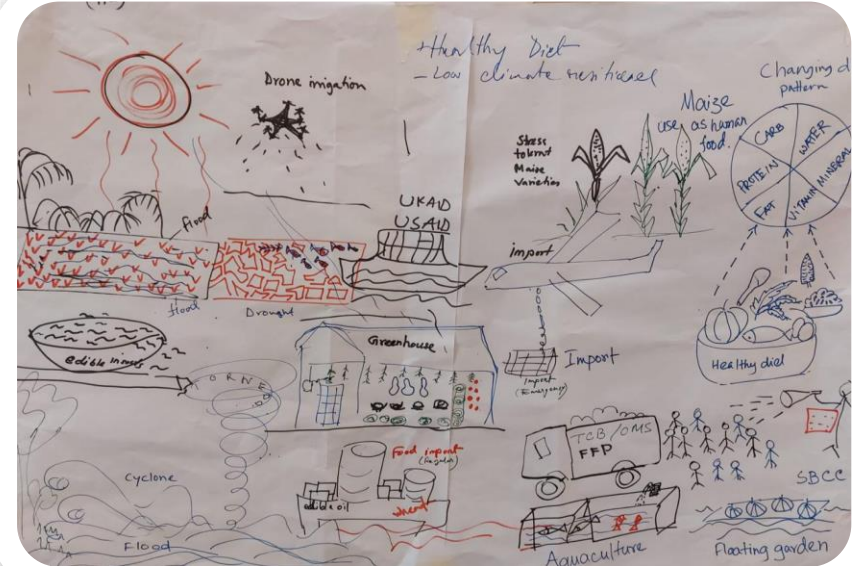 Healthy Diet
- Low climate
Changing d
pattern
Drone irrigation
Maize
use as human
food.
Stress
tolerant
Maize
Varieties
CARB
WATER
PROTEIN
MINERAL
FAT
VITAMIN
UKAID
USAID
flood
import
flood
Drought
edible insects
Greenhouse
Import
Import
(Emergency)
Healthy diet
TORNEDO
TCB/OMS
FFP
Food import
(Regular)
Cyclone
edible oil
wheat
SBCC
Flood
Aquaculture
Floating garden